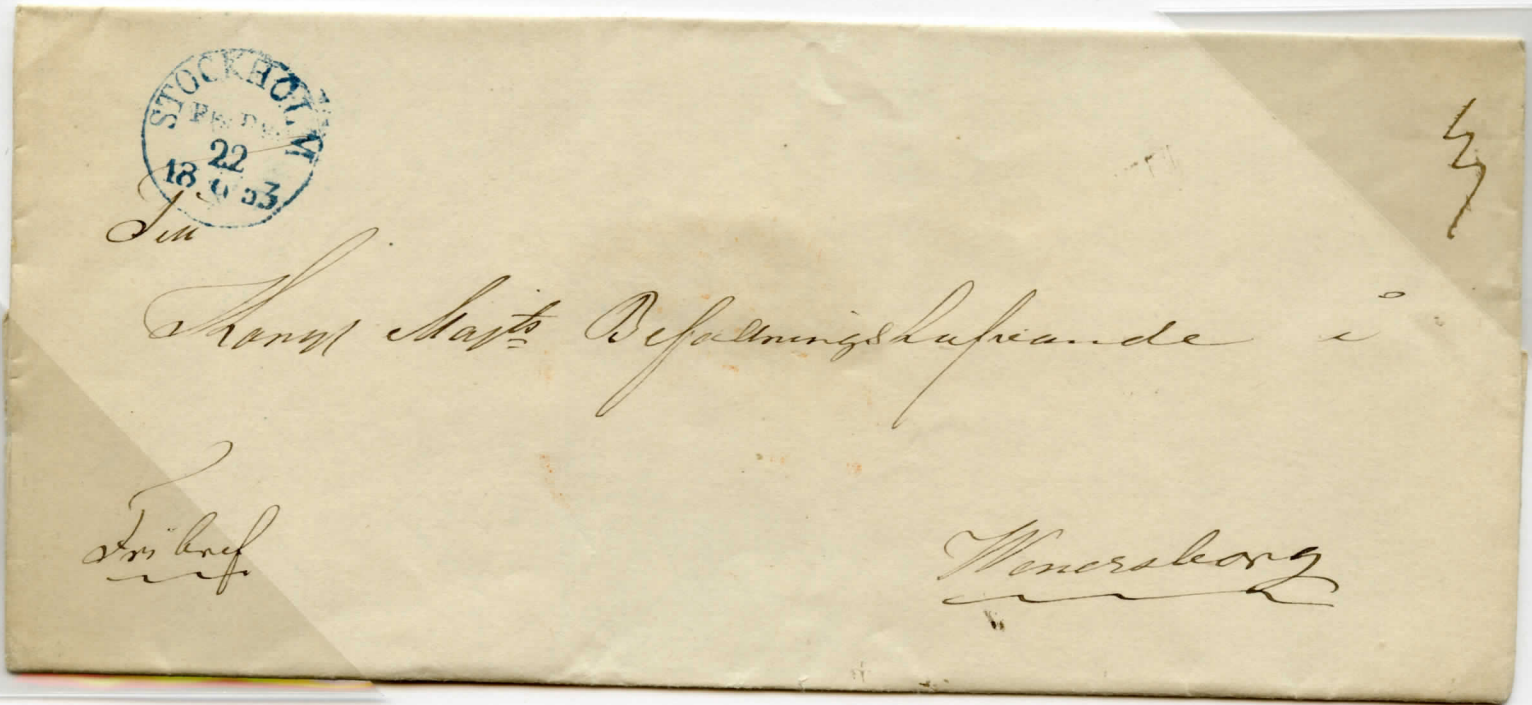 STOCKHOLM
22
18 9 53
Till
Kongl Majts Befallningshafvande i
Fribref
Wenersborg